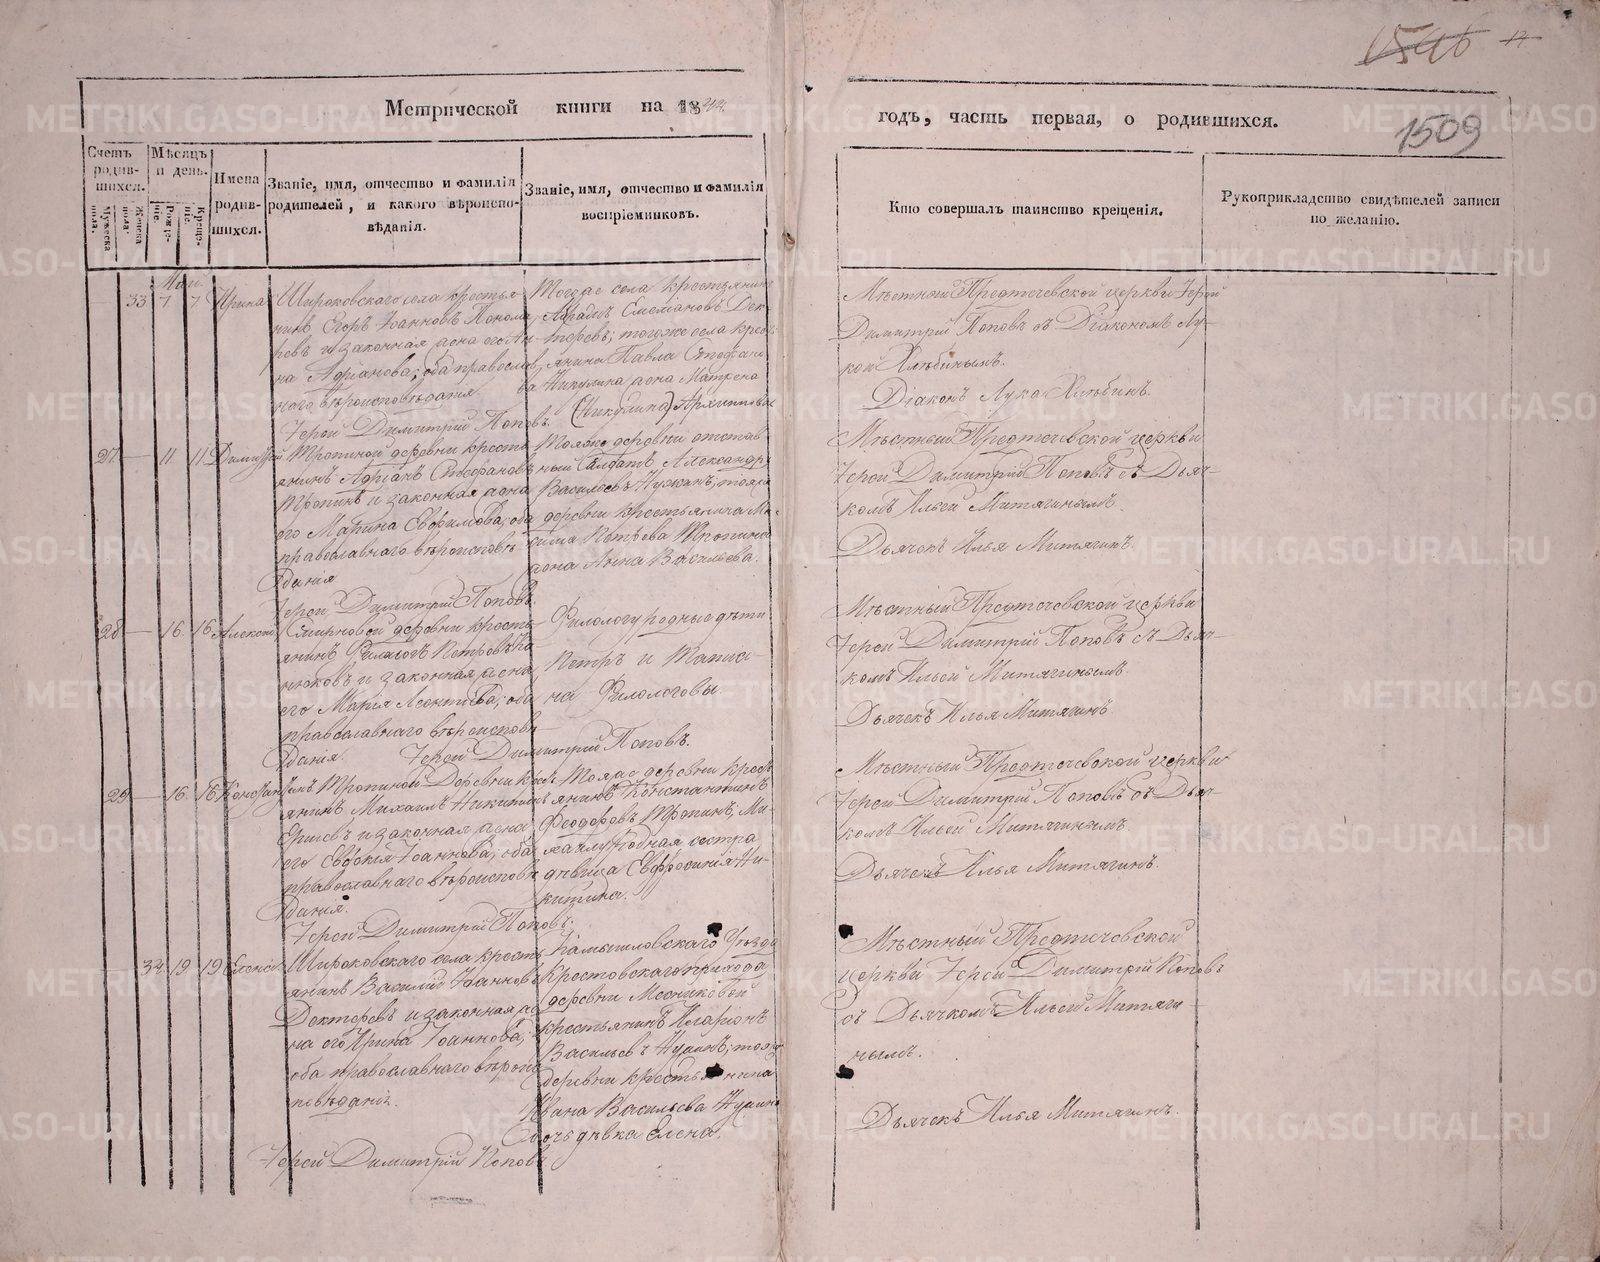 Метрической книги на 1844
годъ, часть первая, о родившихся.
1509
Счетъ родив-
шихся.
Мужеска пола.
Женска пола.
Мѣсяцъ
и день.
Рожде-
ніе.
Креще-
ніе.
Имена
родив-
шихся.
Званіе, имя, отчество и фамилія
родителей, и какого вѣроиспо-
вѣданія.
Званіе, имя, отчество и фамилія
воспріемниковъ.
Кто совершалъ таинство крещенія.
Рукоприкладство свидѣтелей записи
по желанію.
33 7 7 Ирина
Широковскаго села крестья-
нинъ Егоръ Іоанновъ Понома-
ревъ и законная жена его Ан-
на Адріанова; оба православ-
наго вѣроисповѣданія
Іерей Димитрій Поповъ.
Тогоже села крестьянинъ
Емеліановъ Дек-
теревъ; тогоже села кресть-
янина Павла Стефано-
ва Никулина жена Матрена
(Никулина) Архиповна
Мѣстный Предтечевской церкви Іерей
Димитрій Поповъ съ Діакономъ Лу-
кой Хлѣбинымъ.
Діаконъ Лука Хлѣбинъ.
27 11 11 Димитрій
Тропиной деревни кресть-
янинъ Адріанъ Стефановъ
Тропинъ и законная жена
его Марина Евфимова; оба
православнаго вѣроисповѣ-
данія
Іерей Димитрій Поповъ.
Тояже деревни отстав-
ный Салдатъ Александръ
Васильевъ тояже
деревни крестьянина Мак-
сима Петрова Тропина
жена Анна Васильева.
Мѣстный Предтечевской церкви
Іерей Димитрій Поповъ съ Дьяч-
комъ Ильей Митягинымъ.
Дьячекъ Илья Митягинъ.
28 16 16 Алексій
Смирновой деревни кресть-
янинъ Филологъ Петровъ Ка-
нюковъ и законная жена
его Марія Леонтіева; оба
православнаго вѣроисповѣ-
данія. Іерей Димитрій Поповъ.
Филологу родные дѣти
Петръ и Татиа-
на Филологовы.
Мѣстный Предтечевской церкви
Іерей Димитрій Поповъ съ Дьяч-
комъ Ильей Митягинымъ.
Дьячекъ Илья Митягинъ
29 16 16 Константинъ
Тропиной Деревни кресть-
янинъ Михаилъ Никитинъ
Ершевъ и законная жена
его Евдокія Іоаннова; оба
православнаго вѣроисповѣ-
данія.
Іерей Димитрій Поповъ.
Тояже деревни кресть-
янинъ Константинъ
Феодоровъ Тропинъ, Ми-
хаилу Родная сестра
дѣвица Евфросинія Ни-
китина.
Мѣстный Предтечевской церкви
Іерей Димитрій Поповъ съ Дьяч-
комъ Ильей Митягинымъ
Дьячекъ Илья Митягинъ.
34 19 19 Елена
Широковскаго села кресть-
янинъ Василій Іоанновъ
Дектеревъ и законная же-
на его Ирина Іоаннова;
оба православнаго вѣроис-
повѣданія.
Іерей Димитрій Поповъ.
Камышловскаго Уѣзда
Крестовскаго прихода
деревни Месниковой
крестьянинъ Иларіонъ
Васильевъ тояже
деревни крестьянина
Ивана Васильева
дочь дѣвка Елена.
Мѣстный Предтечевской
церкви Іерей Димитрій Поповъ
съ Дьячкомъ Ильей Митяги-
нымъ.
Дьячекъ Илья Митягинъ.
METRIKI.GASO-URAL.RU